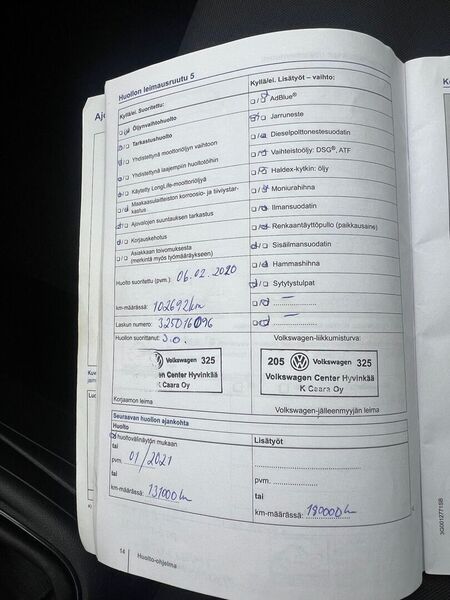 Huollon leimausruutu 5
Kyllä/ei. Suoritettu:
Öljynvaihtohuolto
Tarkastushuolto
Yhdistettynä moottoriöljyn vaihtoon
Yhdistettynä laajempiin huoltotöihin
Käytetty LongLife-moottoriöljyä
Maakaasulaitteiston korroosio- ja tiiviystar-
kastus
Ajovalojen suuntauksen tarkastus
Korjauskehotus
Asiakkaan toivomuksesta
(merkintä myös työmääräykseen)
Huolto suoritettu (pvm.): 06.02.2020
km-määrässä: 102692km
Laskun numero: 325016096
Huollon suorittanut: J.O.
Volkswagen 325
Volkswagen Center Hyvinkää
K Caara Oy
Korjaamon leima
Kyllä/ei. Lisätyöt – vaihto:
AdBlue®
Jarruneste
Dieselpolttonestesuodatin
Vaihteistoöljy: DSG®, ATF
Haldex-kytkin: öljy
Moniurahihna
Ilmansuodatin
Renkaantäyttöpullo (paikkausaine)
Sisäilmansuodatin
Hammashihna
Sytytystulpat
Volkswagen-liikkumisturva:
205 Volkswagen 325
Volkswagen Center Hyvinkää
K Caara Oy
Volkswagen-jälleenmyyjän leima
Seuraavan huollon ajankohta
Huolto
huoltovälinäytön mukaan
tai
pvm. 01/2021
tai
km-määrässä: 131000km
Lisätyöt
pvm.
tai
km-määrässä: 180000km
14
Huolto-ohjelma
3G0012771SB